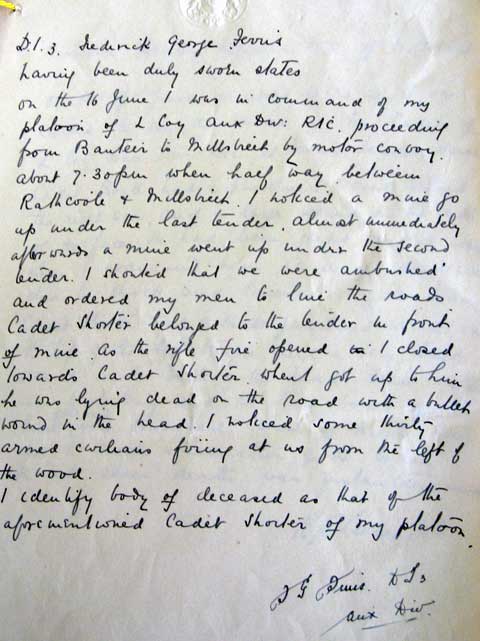 D.I.3. Frederick George Ferris
having been duly sworn states
on the 16 June I was in command of my
platoon of L Coy Aux Div: RIC. proceeding
from Banteir to Millstreet by motor convoy.
about 7.30pm when half way between
Rathcoole & Millstreet. I noticed a mine go
up under the last tender. almost immediately
afterwards a mine went up under the second
tender. I shouted that we were ambushed
and ordered my men to line the roads
Cadet Shorter belonged to the tender in front
of mine. As the rifle fire opened I closed
towards Cadet Shorter. when I got up to him
he was lying dead on the road with a bullet
wound in the head. I noticed some thirty
armed civilians firing at us from the left of
the wood.
I identify body of deceased as that of the
aforementioned Cadet Shorter of my platoon.
F G Ferris. D.I.3
Aux Div.